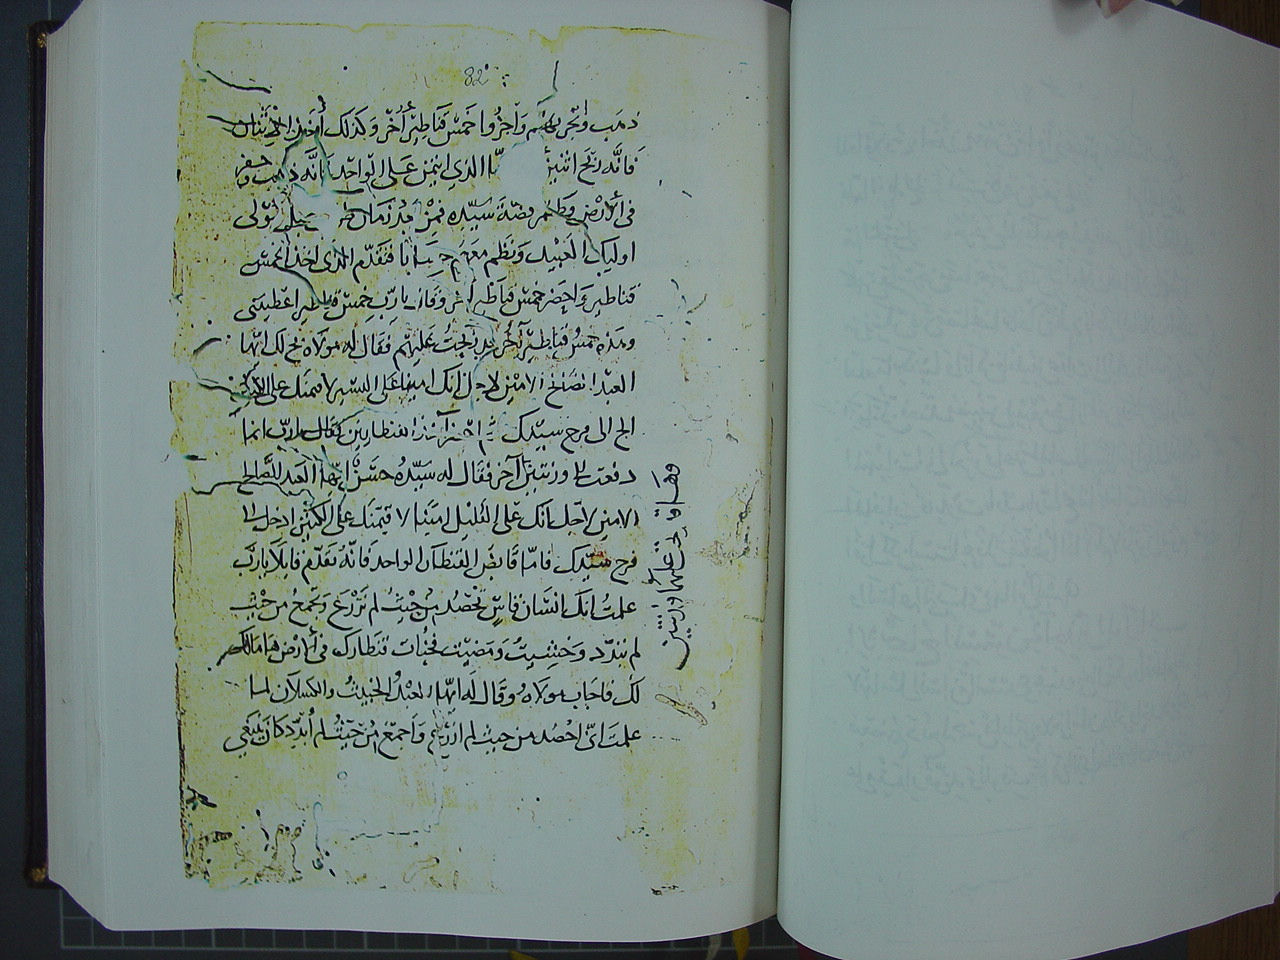 82
ذهب واتجر بهم واجزوا خمس قناطير أُخر وكذلك ايضا
فانّه ربح اثنين الذي ايتمن على الواحد فانّه ذهب وحفر
في الأرض وطمر فضّة سيّده فمن بعد زمان مولى
اوليك العبيد ونظم معهم حسابا فتقدّم الذي اخذ الخمس
قناطير واحضر خمس قناطير اخر وقال يا ربّ خمس قناطير اعطيتني
وهذه خمس قناطير أُخر ربحتُ عليهم فقال له مولاه نعم لك ايّها
العبد الصالح الامين لاجل انك امينا على اليسير لاقيمنك على الكثير
الج الى فرح سيّدك القنطارين فقال يا ربّ انما
دفعت لي وزنتين آخر فقال له سيّده حسنٌ ايّها العبد الصالح
الامين لاجل انك على القليل امينا لاقيمنك على الكثير ادخل الى
فرح سيّدك فامّا قابض القنطار الواحد فانّه تقدّم قايلا يا ربّ
علمت انك انسان قاسٍ تحصد من حيثُ لم تزرع وتجمع من حيث
لم تبدّد وخشيتُ ومضيت فخبأت قنطارك في الأرض ها مالك
لك فاجاب مولاه وقال له ايّها العبدُ الخبيث والكسلان لما
علمت انّي احصد من حيث لم ازرع واجمع من حيثُ لم أُبدّد كان ينبغي
وهاوذا ربحت عليهما وزنتين